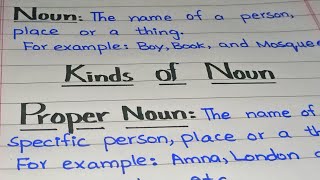 Noun: The name of a person,
place or a thing.
For example: Boy, Book, and Mosque
Kinds of Noun
Proper Noun: The name of
specific person, place or a th
For example: Amna, London